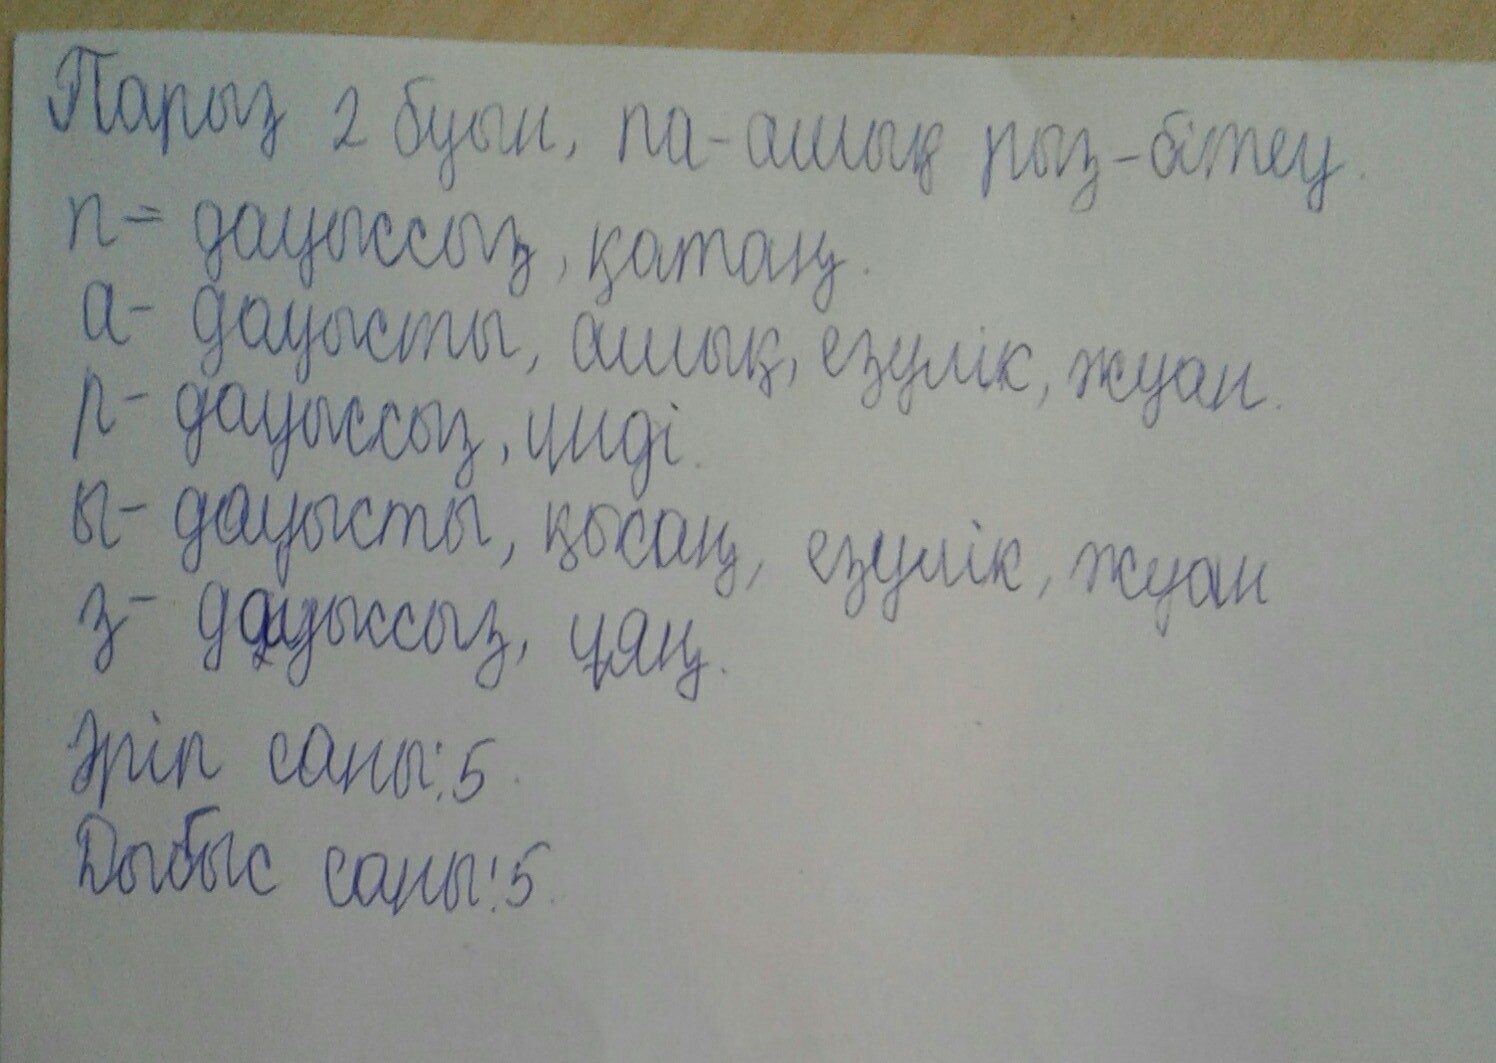 Парыз 2 буын, па-ашық рыз-бітеу.
п- дауыссыз, қатаң.
а- дауысты, ашық, езулік, жуан.
р- дауыссыз, үнді.
ы- дауысты, қысаң, езулік, жуан
з- дауыссыз, ұяң.
Әріп саны:5.
Дыбыс саны:5.